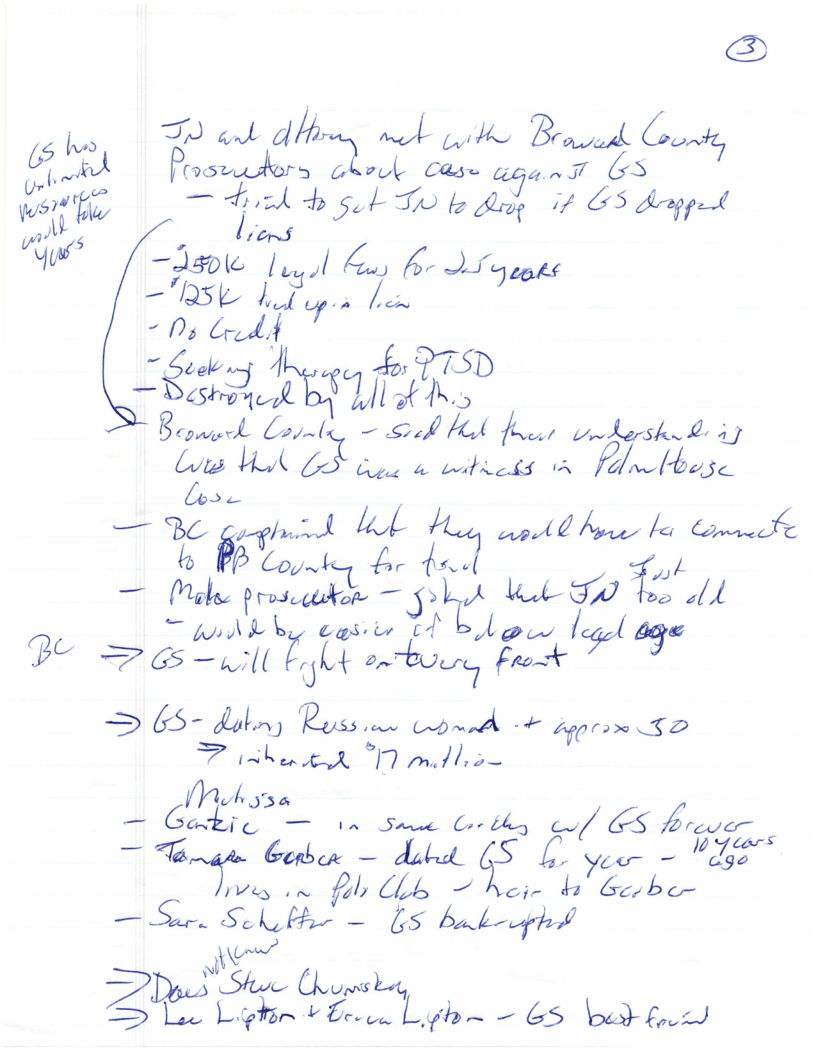 3
GS has
unlimited
resources
would take
years
JN and attorney met with Broward County
Prosecutors about case against GS
- tried to get JN to drop if GS dropped
liens
- $250K legal fees for 2.5 years
- $125K tied up in lien
- No Credit
- Seeking therapy for PTSD
- Destroyed by all of this
- Broward County - said that their understanding
was that GS was a witness in PalmHouse
Case
- BC complained that they would have to commute
to PB County for trial
- Male prosecutor - joked that JN just too old
- would be easier if below legal age
BC ⇒ GS - will fight on every front
⇒ GS - dating Russian woman + approx 30
⇒ inherited $17 million
Melissa
- Ganzie - in same circles w/ GS forever
- Tamara Gerber - dated GS for year - 10 years ago
lives in Polo Club - heir to Gerber
- Sara - GS bankrupted
not know
⇒ Does Steve
⇒ Lee Lipton + Erica Lipton - GS best friend